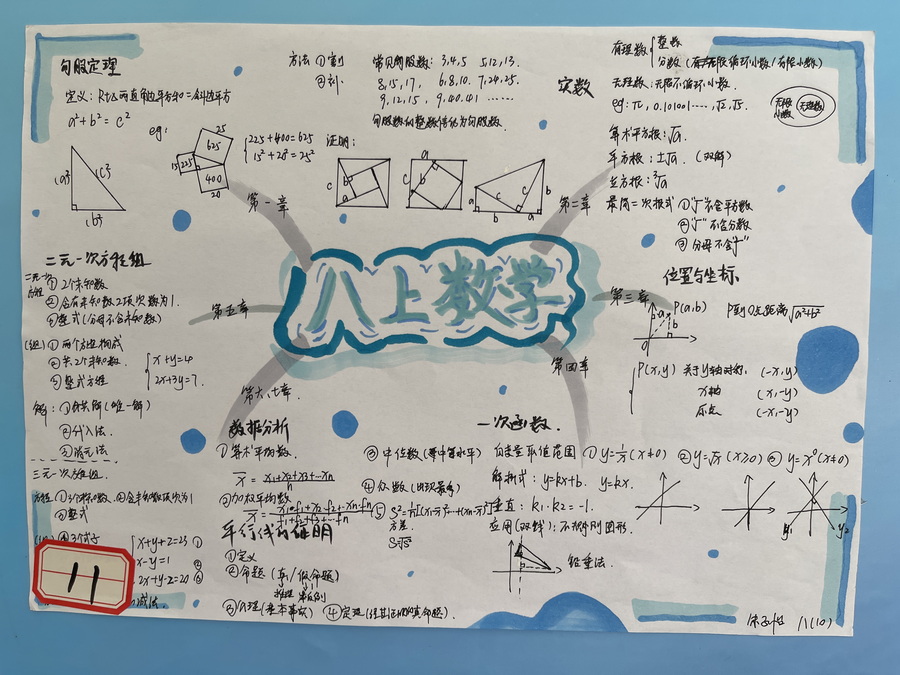 八上数学
勾股定理
定义：Rt△两直角边平方和=斜边平方
a²+b²=c²
eg:
25
625
15
225
400
20
225+400=625
15²+20²=25²
方法 ①
②
常见勾股数：3,4,5 5,12,13.
8,15,17, 6,8,10. 7,24,25.
9,12,15, 9,40,41 ……
勾股数的整数倍仍为勾股数.
证明：
第一章
第二章
实数
有理数
整数
分数
无理数：无限不循环小数
eg: π, 0.101001…, √2, √5.
无限小数
无理数
算术平方根：√a.
平方根：±√a. (双解)
立方根：³√a
最简二次根式 ①"√"不含平方数
②"√"不含分数
③分母不含"√"
位置与坐标
第三章
P(a,b)
P到O点距离 √a²+b²
P(x,y) 关于y轴对称. (-x,y)
x轴 (x,-y)
原点 (-x,-y)
第四章
一次函数.
自变量取值范围 ①y=1/x (x≠0) ②y=√x (x≥0) ③y=x⁰(x≠0)
解析式：y=kx+b. y=kx.
垂直：k₁·k₂=-1.
y₁
y₂
铅垂法.
第五章
二元一次方程组
二元一次方程
①2个未知数
②含有未知数2项次数为1.
③整式(分母不含未知数)
(组) ①两个方程构成
②共2个未知数.
③整式方程
x+y=4
2x+3y=7.
解：①公共解(唯一解)
②代入法.
③消元法
三元一次方程组.
方程 ①3个未知数 ②含未知数项次为1
③整式
x+y+z=23 ①
x-y=1 ②
2x+y-z=20 ③
减法.
第六、七章.
数据分析
①算术平均数.
x̄ = x₁+x₂+x₃+…xn / n
②加权平均数
③中位数(等中等水平)
④众数(出现最多)
⑤
方差.
平行线的证明
①定义
②命题(真/假命题)
③公理(基本事实) ④定理(经过证明的真命题).
11
八(10)